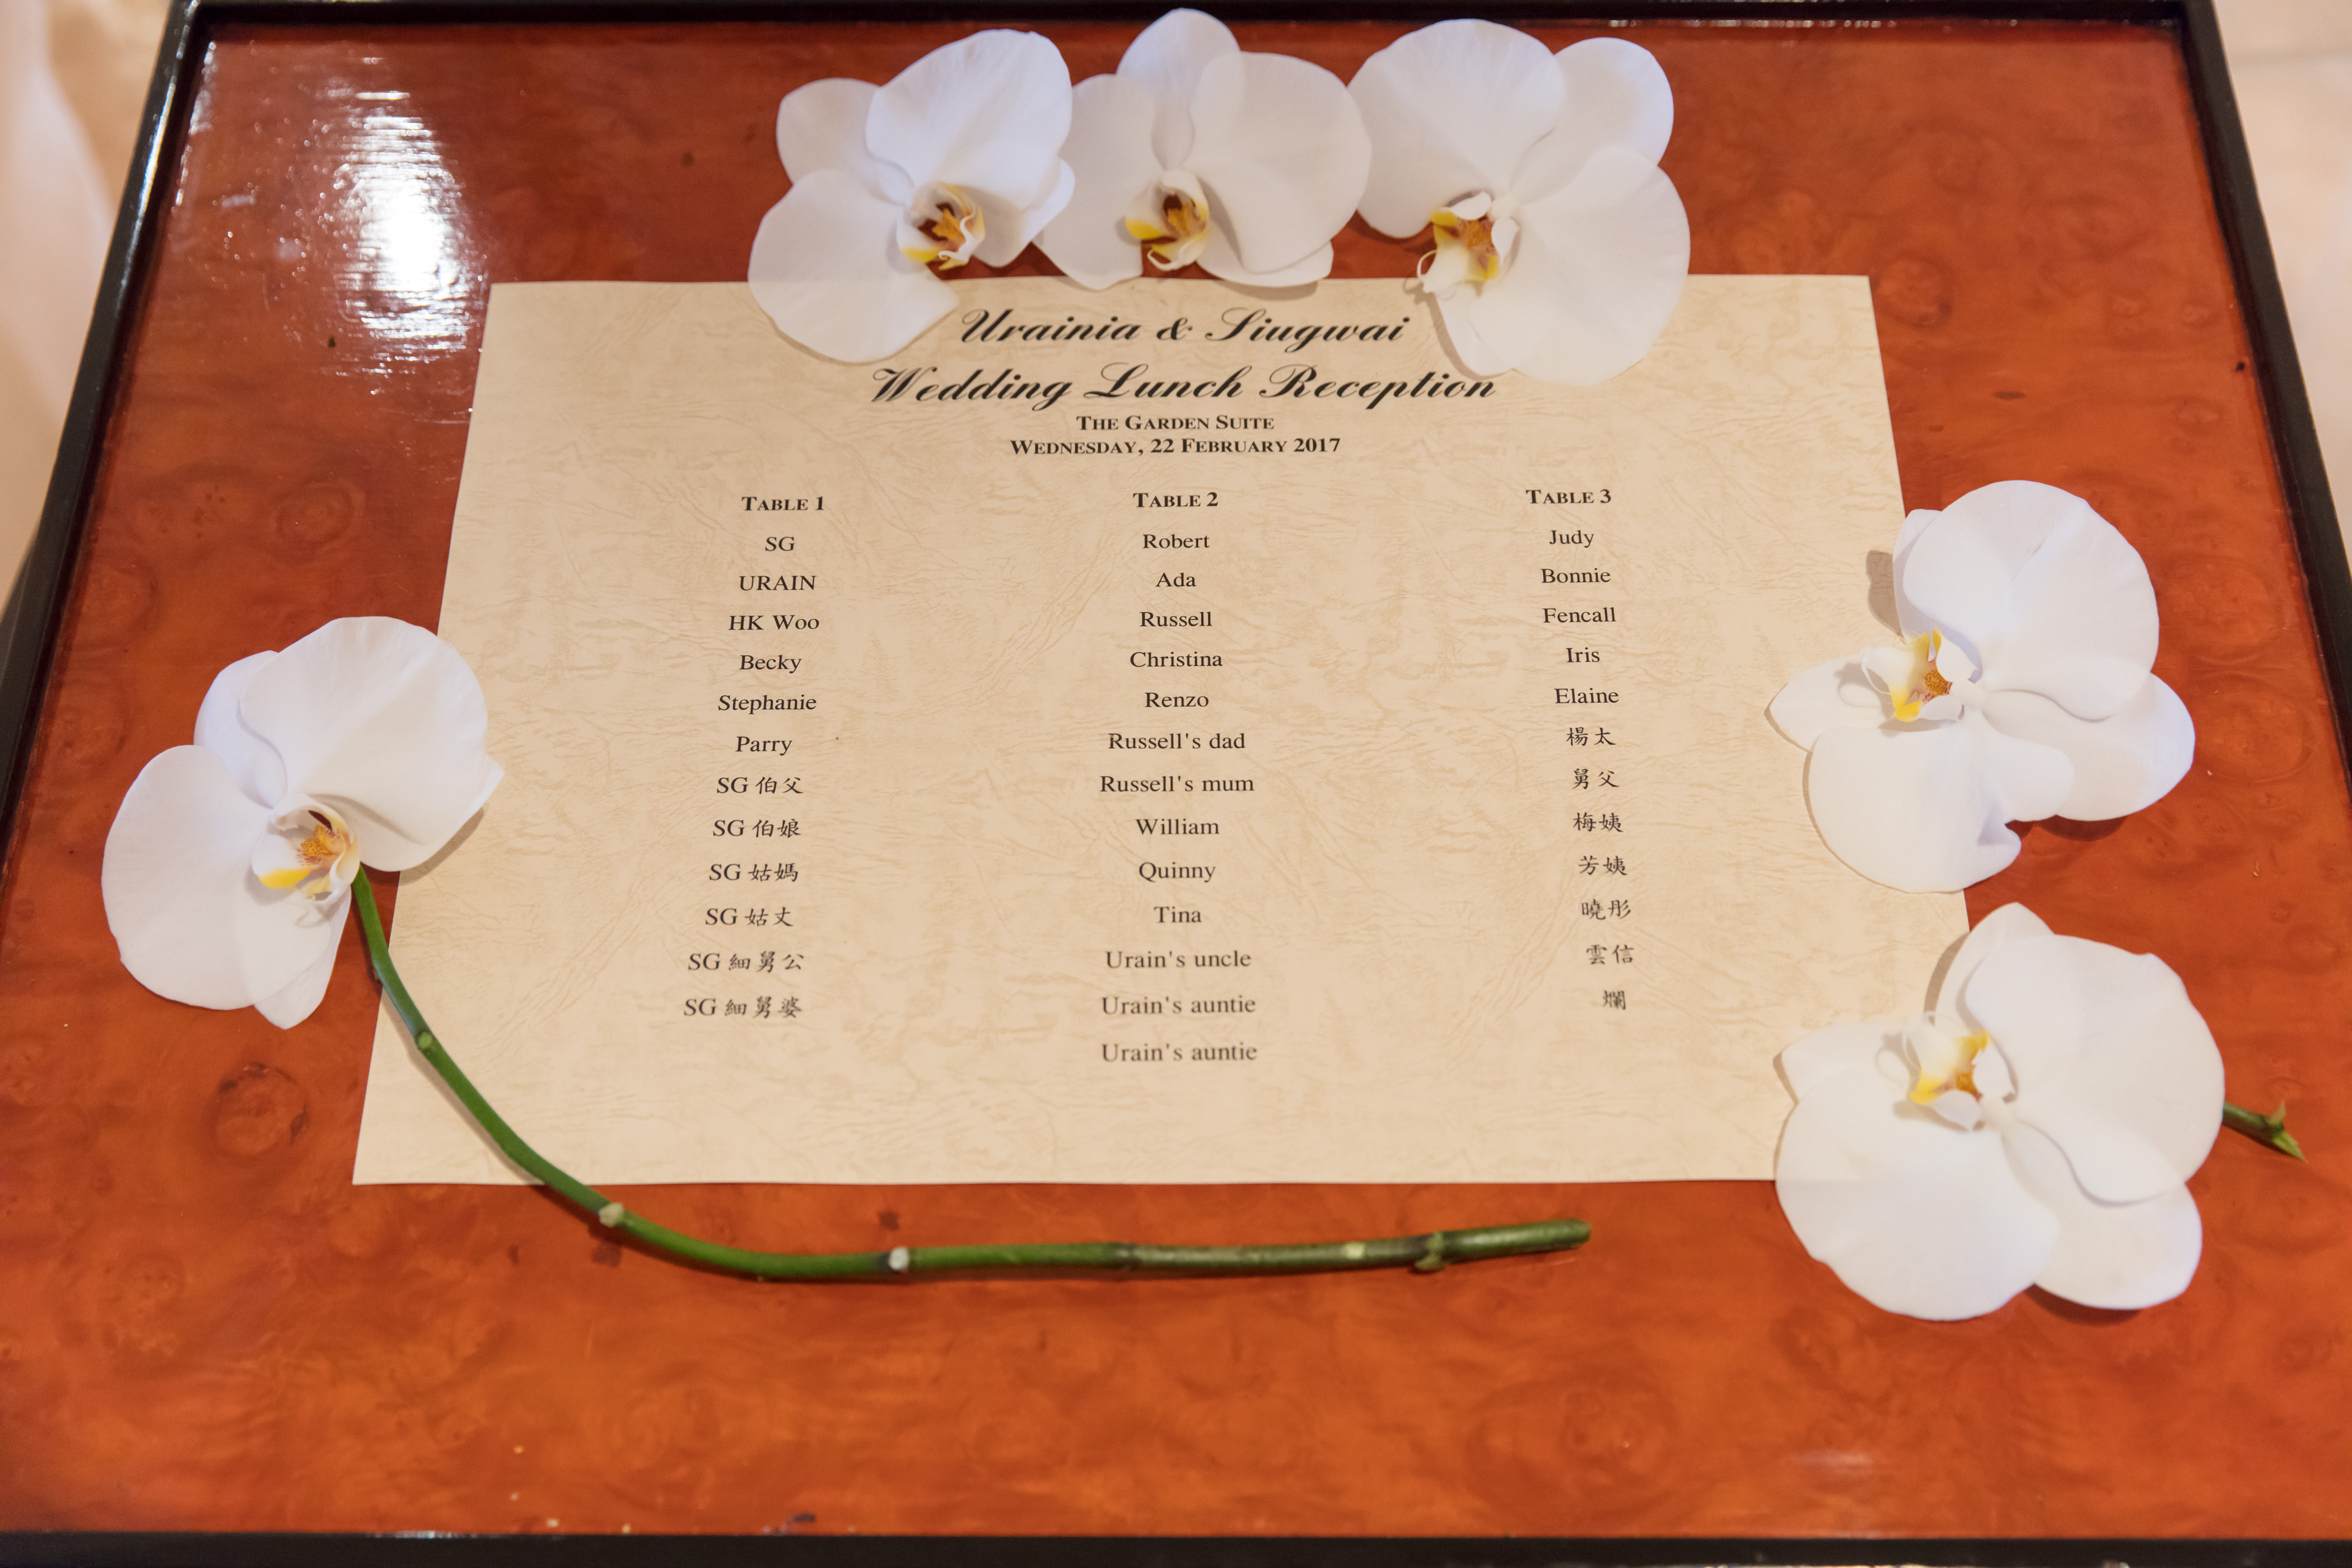 Urainia & Siugwai
Wedding Lunch Reception
THE GARDEN SUITE
WEDNESDAY, 22 FEBRUARY 2017
TABLE 1
SG
URAIN
HK Woo
Becky
Stephanie
Parry
SG 伯父
SG 伯娘
SG 姑媽
SG 姑丈
SG 細舅公
SG 細舅婆
TABLE 2
Robert
Ada
Russell
Christina
Renzo
Russell's dad
Russell's mum
William
Quinny
Tina
Urain's uncle
Urain's auntie
Urain's auntie
TABLE 3
Judy
Bonnie
Fencall
Iris
Elaine
楊太
舅父
梅姨
芳姨
曉彤
雲信
爛